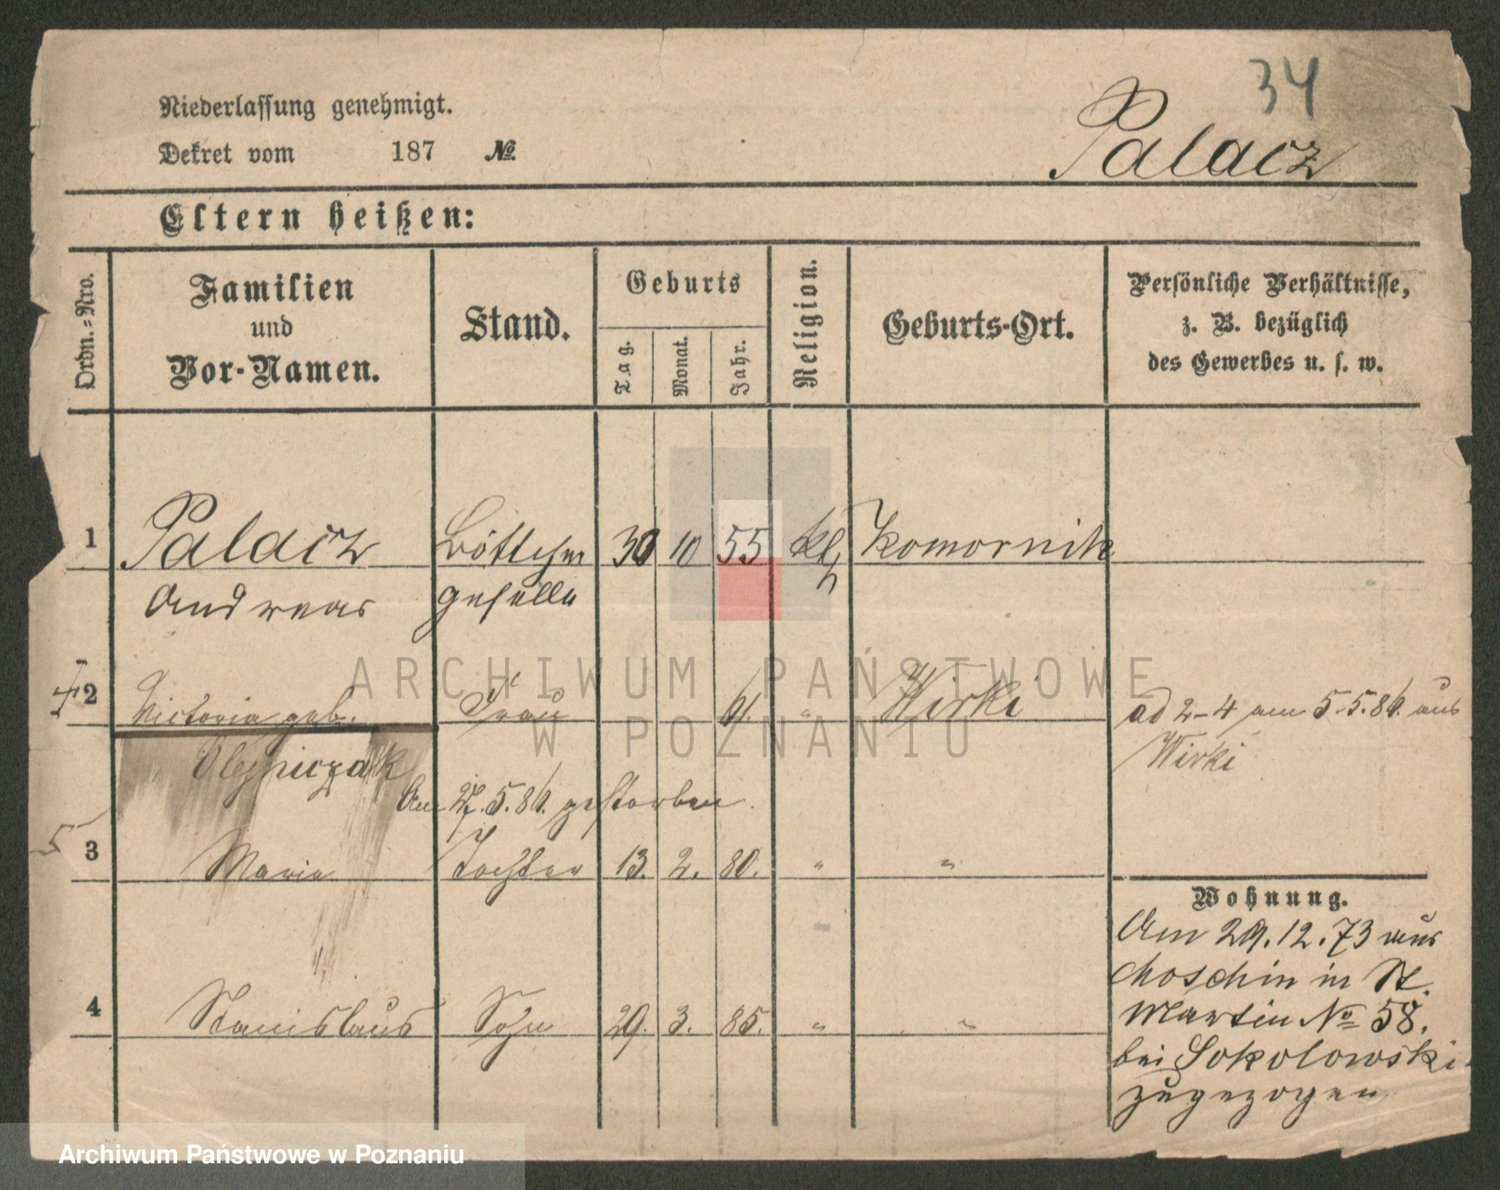 34
Niederlassung genehmigt.
Dekret vom 187 №
Palacz
Eltern heißen:
Ordn.=Nro.
Familien und Vor-Namen.
Stand.
Geburts
Tag.
Monat.
Jahr.
Religion.
Geburts-Ort.
Persönliche Verhältnisse,
z. B. bezüglich
des Gewerbes u. s. w.
1 Palacz Böttcher 30 10 55 kth Komornik
Andreas geselle
2 Victoria geb. Frau 61. " Wirki ad 2-4 am 5.5.86. aus
Olejniczak Wirki
Am 27.5.86. gestorben.
3 Maria Tochter 13. 2. 80. " "
Wohnung.
Am 29.12.73 aus
Moschin in St.
4 Stanislaus Sohn 29. 3. 85. " "
Martin № 58.
bei Sokolowski
zugezogen
ARCHIWUM PAŃSTWOWE
W POZNANIU
Archiwum Państwowe w Poznaniu